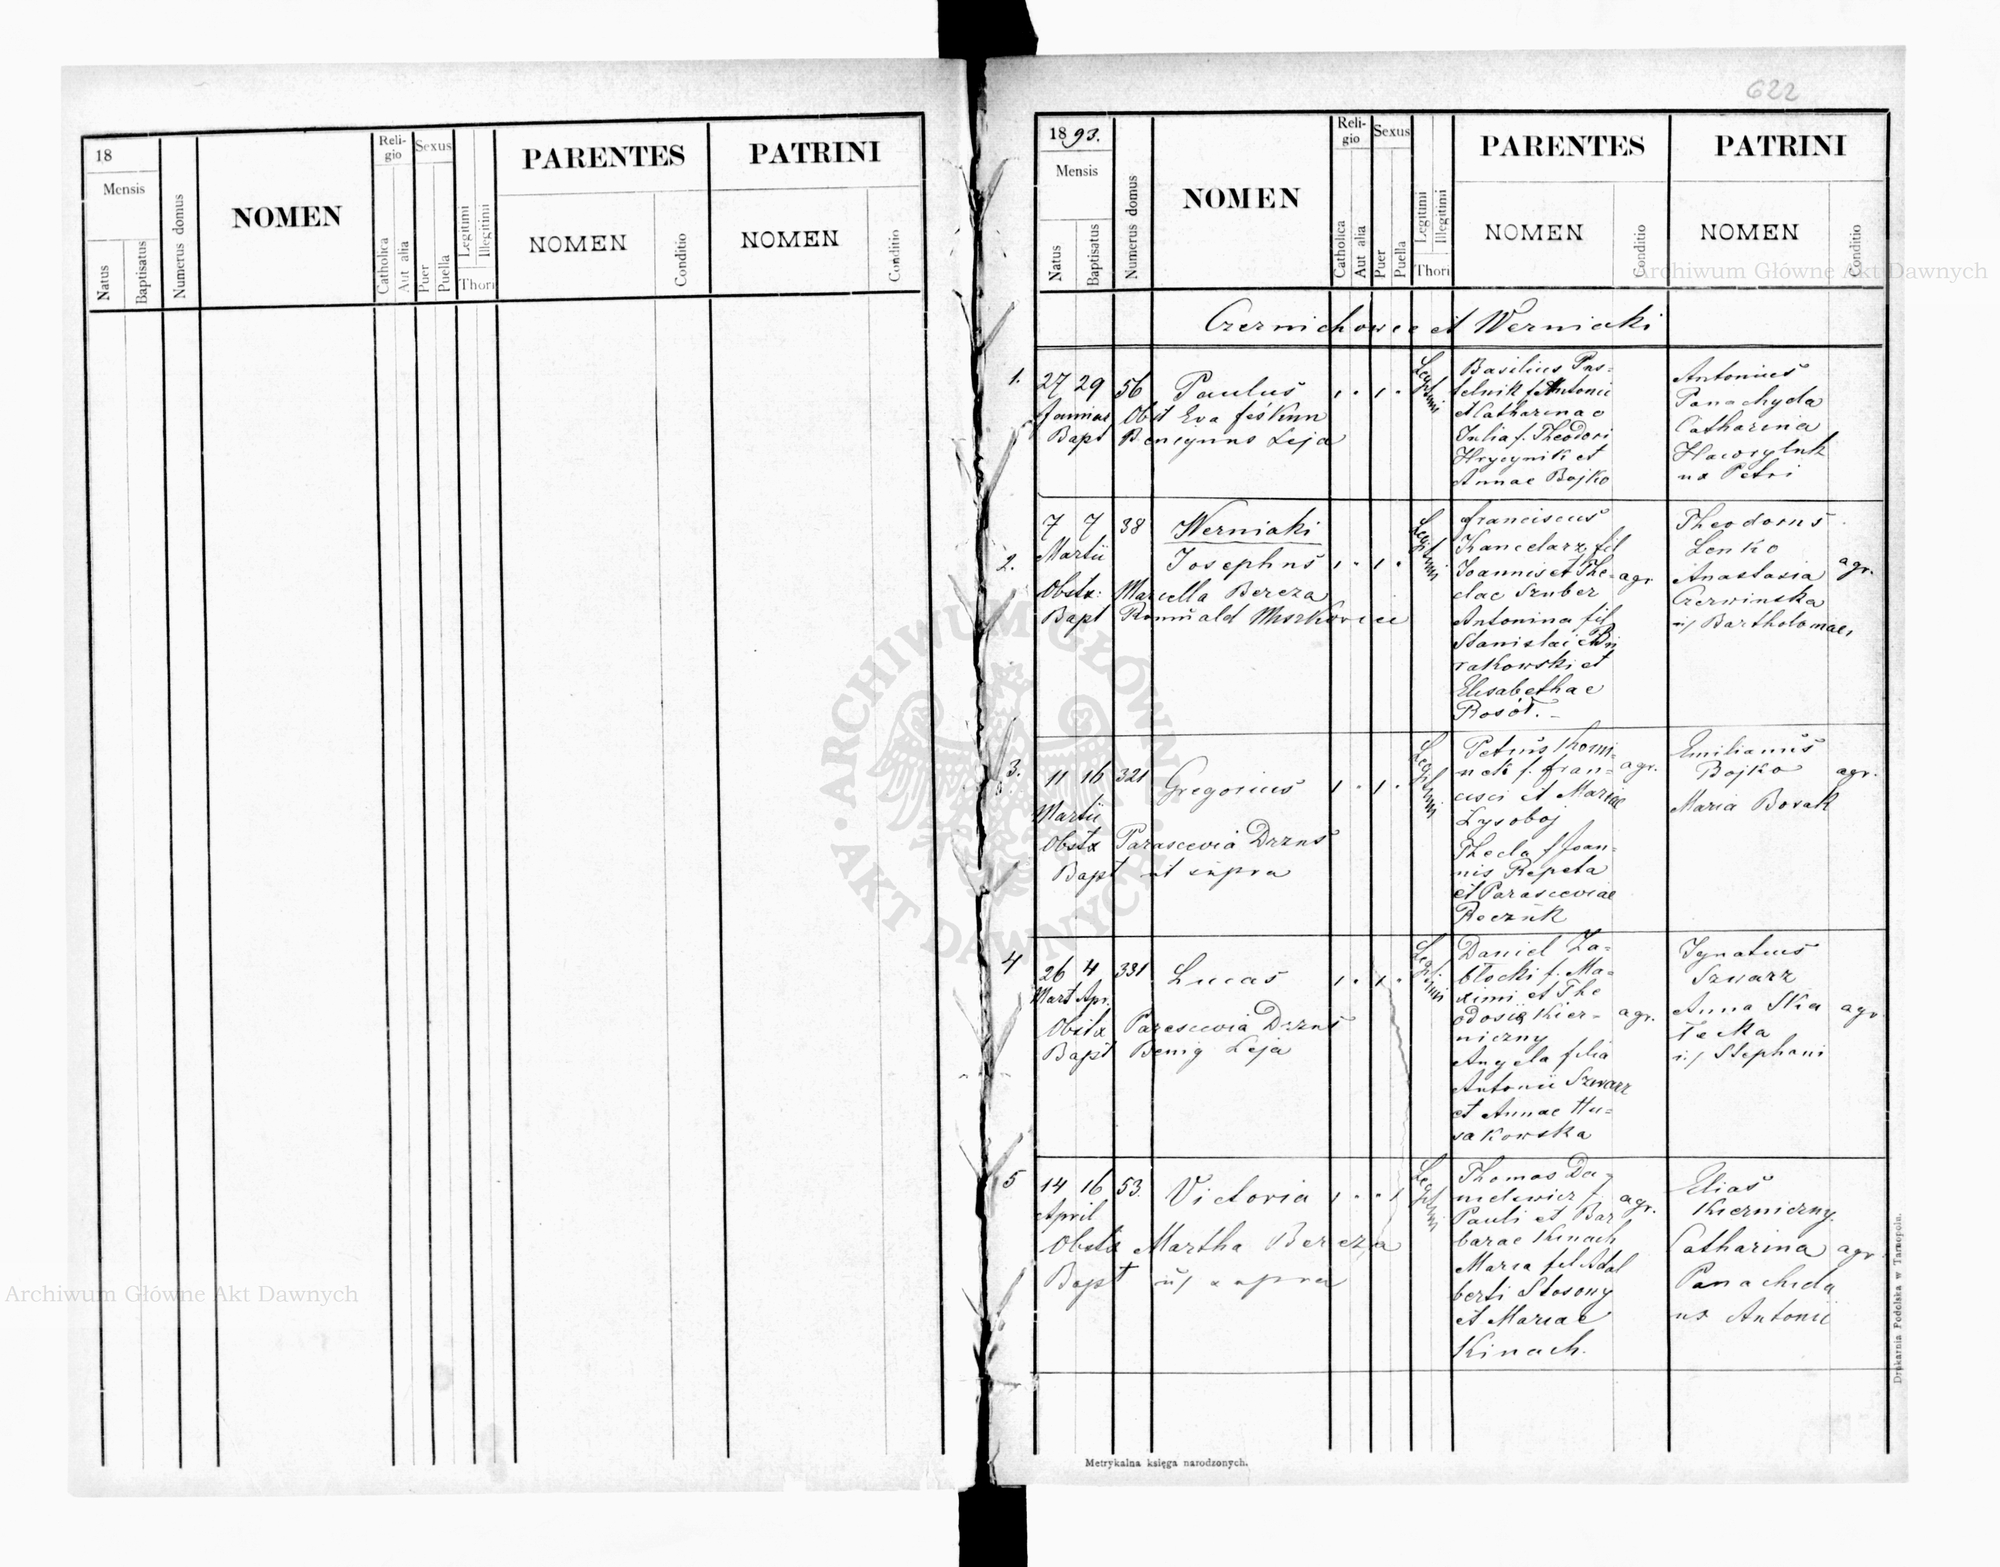 18
Mensis
Natus
Baptisatus
Numerus domus
NOMEN
Religio
Catholica
Aut alia
Sexus
Puer
Puella
Legitimi
Illegitimi
Thori
PARENTES
NOMEN
Conditio
PATRINI
NOMEN
Conditio
622
1893.
Mensis
Natus
Baptisatus
Numerus domus
NOMEN
Reli-
gio
Catholica
Aut alia
Sexus
Puer
Puella
Legitimi
Illegitimi
Thori
PARENTES
NOMEN
Conditio
PATRINI
NOMEN
Conditio
Czernichowce et Werniaki
1.
27 29 56 Paulus
Obst Eva
Bapt Benignus Leja
Legitimi
Basilius Pus-
telnik f. Antonii
et Catharinae
Julia f. Theodori
Hrycynik et
Annae Bojko
Antonius
Panachyda
Catharina
ux Petri
2.
7 7 38 Werniaki
Martii
Josephus
Obstx: Marcella Bereza
Bapt Romuald
Legitimi
Franciscus
Kancelarz fil
Joannis et The-
clae Szuber
agr
Antonina fil
Stanislai
rakowski et
Elisabethae
Rosół. -
Theodorus
Lenko
Anastasia
Czerwinska
agr.
Bartholomaei
3.
11 16 321 Gregorius
Martii
Obstx Parascevia Drzus
Bapt ut supra
Legitimi
Petrus
f. Fran-
cisci et Mariae
agr.
Łysoboj
Thecla f Joan-
nis Repeta
et Parasceviae
Reczuk
Emilianus
Bojko agr.
Maria Borak
4
26 4 331 Lucas
Mart Apr.
Obstx Parascevia Drzus
Bapt Benig Leja
Legitimi
Daniel Za-
błocki f. Ma-
ximi et The
odosia Kier-
niczny
agr.
Angela filia
Antonii Szwarz
et Annae Hu-
sakowska
Ignatius
Szwarz
Anna Ska
agr
Stephani
5
14 16 53. Victoria
April
Obstx Martha Bereza
Bapt ut supra
Legitimi
Thomas Da-
nielewicz f.
agr.
Pauli et Bar
barae Kinach
Maria fil Adal
berti Stosony
et Mariae
Kinach.
Elias
Kierniczny
Catharina agr.
Panachida
ux Antonii
Metrykalna księga narodzonych.
Drukarnia Podolska w Tarnopolu.
Archiwum Główne Akt Dawnych
Archiwum Główne Akt Dawnych
ARCHIWUM GŁÓWNE
AKT DAWNYCH